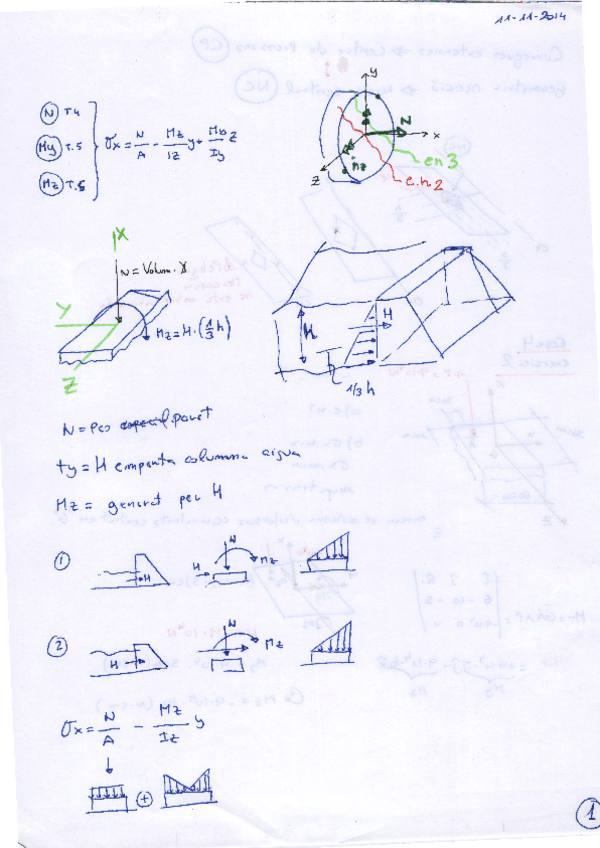 11-11-2014
N T.4
My T.5
Mz T.5
σx = N/A - Mz/Iz y + My/Iy z
y
N
x
Mz
z
en 3
e.n.2
X
N = Volum · γ
Y
Mz = H·(1/3 h)
Z
H
H
1/3 h
N = Pes paret
ty = H empenta columna aigua
Mz = generat per H
1
H
H
N
Mz
2
H
N
Mz
σx = N/A - Mz/Iz y
+
1